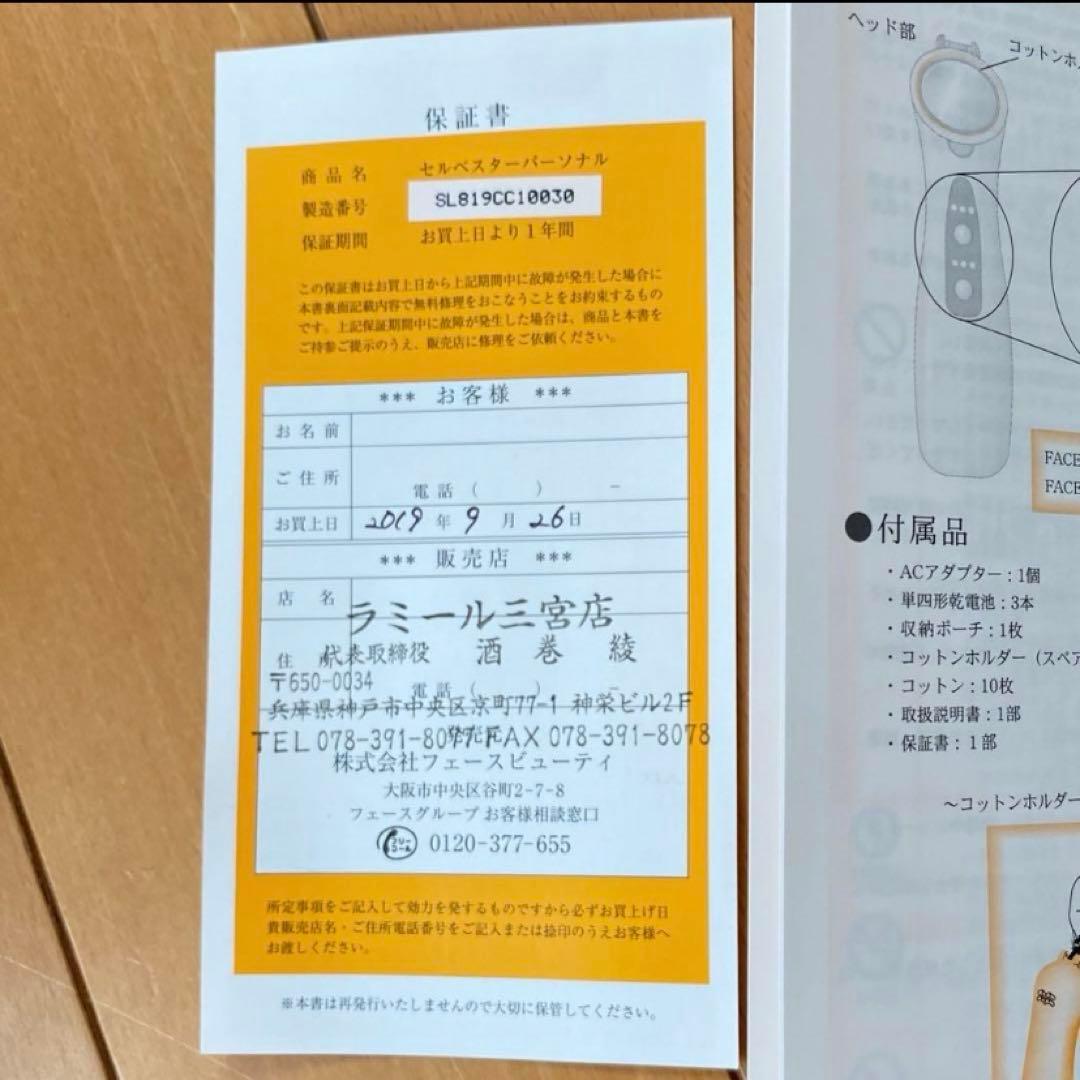 保証書
商品名 セルベスターパーソナル
製造番号 SL819CC10030
保証期間 お買上日より1年間
この保証書はお買上日から上記期間中に故障が発生した場合に
本書裏面記載内容で無料修理をおこなうことをお約束するもの
です。上記保証期間中に故障が発生した場合は、商品と本書を
ご持参ご提示のうえ、販売店に修理をご依頼ください。
*** お客様 ***
お名前
ご住所
電話（ ） −
お買上日 2019年9月26日
*** 販売店 ***
店名 ラミール三宮店
住所 代表取締役 酒巻 綾
〒650-0034 電話（ ） −
兵庫県神戸市中央区京町77-1 神栄ビル2F
発売元
TEL 078-391-8077 FAX 078-391-8078
株式会社フェースビューティ
大阪市中央区谷町2-7-8
フェースグループ お客様相談窓口
0120-377-655
所定事項をご記入して効力を発するものですから必ずお買上げ日
貴販売店名・ご住所電話番号をご記入または捺印のうえお客様へ
お渡しください。
※本書は再発行いたしませんので大切に保管してください。
ヘッド部
コットンホ
FACE
FACE
●付属品
・ACアダプター：1個
・単四形乾電池：3本
・収納ポーチ：1枚
・コットンホルダー（スペア
・コットン：10枚
・取扱説明書：1部
・保証書：1部
～コットンホルダー